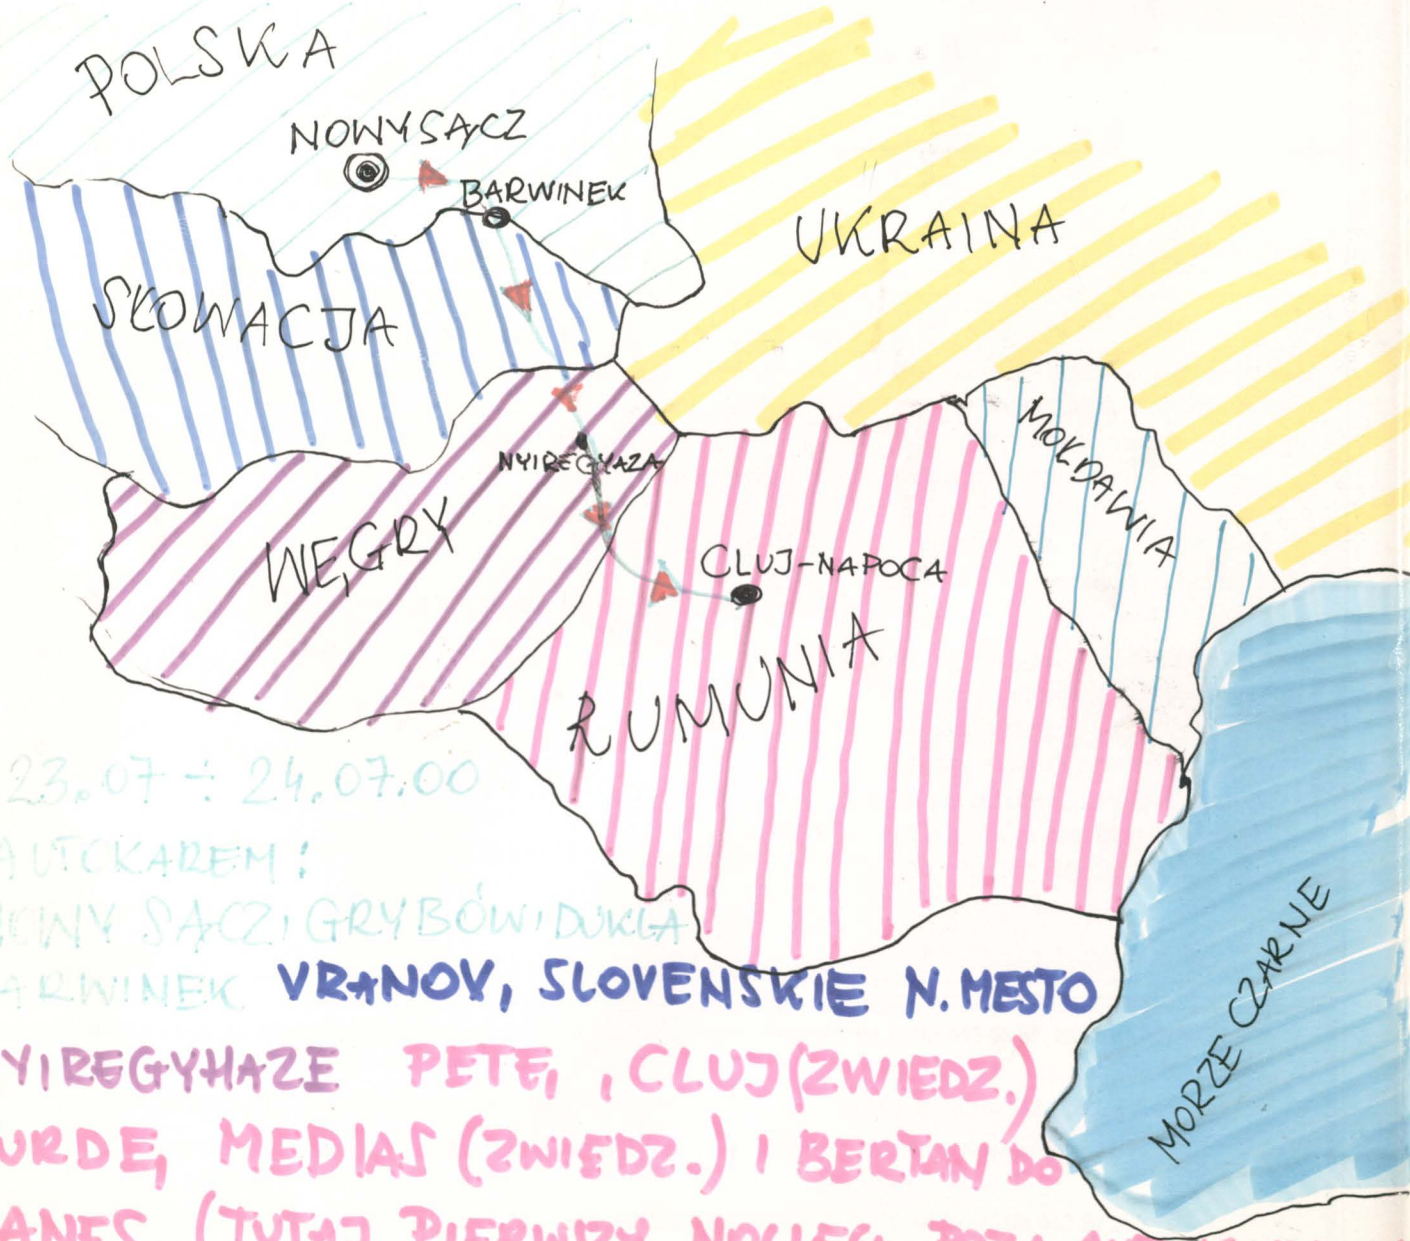 POLSKA
NOWY SĄCZ
BARWINEK
UKRAINA
SŁOWACJA
MOŁDAWIA
NYIREGYAZA
WĘGRY
CLUJ-NAPOCA
RUMUNIA
MORZE CZARNE
23.07 ÷ 24.07.00
AUTOKAREM:
NOWY SĄCZ, GRYBÓW, DUKLA
ARWINEK VRANOV, SLOVENSKIE N. MESTO
YIREGYHAZE PETE, , CLUJ (ZWIEDZ.)
URDE, MEDIAS (ZWIEDZ.) I BERTAN DO
ANES (TUTAJ PIERWSZY NOCLEG